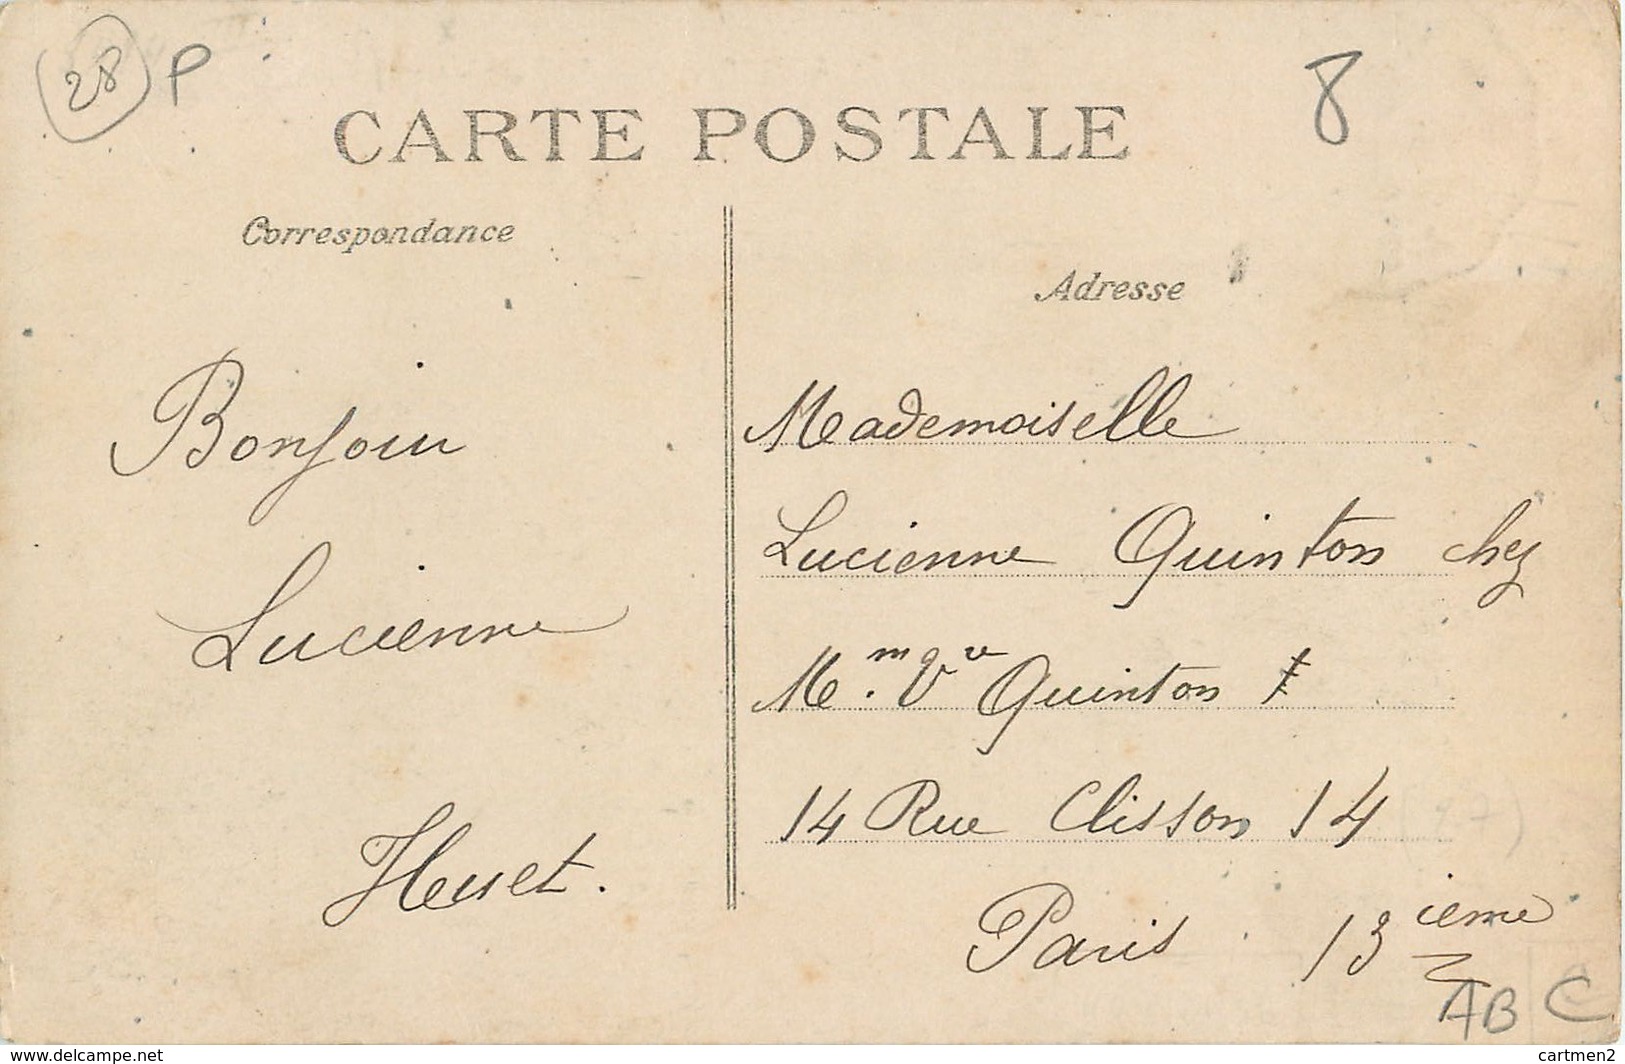 28 P
8
CARTE POSTALE
Correspondance
Adresse
Bonjour
Lucienne
Huet.
Mademoiselle
Lucienne Quinton chez
Mm. Vve Quinton
14 Rue Clisson 14
Paris 13ième
ABC
www.delcampe.net
cartmen2